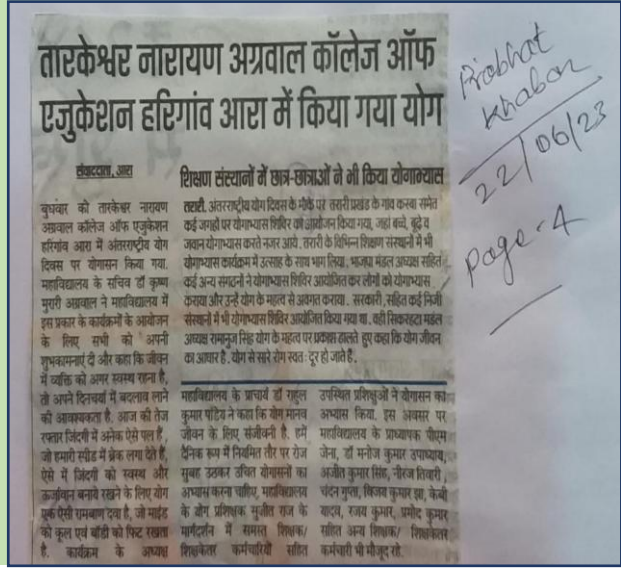 तारकेश्वर नारायण अग्रवाल कॉलेज ऑफ
एजुकेशन हरिगांव आरा में किया गया योग
संवाददाता, आरा
बुधवार को तारकेश्वर नारायण
अग्रवाल कॉलेज ऑफ एजुकेशन
हरिगांव आरा में अंतरराष्ट्रीय योग
दिवस पर योगासन किया गया.
महाविद्यालय के सचिव डॉ कृष्ण
मुरारी अग्रवाल ने महाविद्यालय में
इस प्रकार के कार्यक्रमों के आयोजन
के लिए सभी को अपनी
शुभकामनाएं दी और कहा कि जीवन
में व्यक्ति को अगर स्वस्थ रहना है,
तो अपने दिनचर्या में बदलाव लाने
की आवश्यकता है. आज की तेज
रफ्तार जिंदगी में अनेक ऐसे पल हैं,
जो हमारी स्पीड में ब्रेक लगा देते हैं,
ऐसे में जिंदगी को स्वस्थ और
ऊर्जावान बनाये रखने के लिए योग
एक ऐसी रामबाण दवा है, जो माईंड
को कूल एवं बॉडी को फिट रखता
है. कार्यक्रम के अध्यक्ष
शिक्षण संस्थानों में छात्र-छात्राओं ने भी किया योगाभ्यास
तरारी. अंतरराष्ट्रीय योग दिवस के मौके पर तरारी प्रखंड के गांव कस्बा समेत
कई जगहों पर योगाभ्यास शिविर का आयोजन किया गया, जहां बच्चे, बूढ़े व
जवान योगाभ्यास करते नजर आये. तरारी के विभिन्न शिक्षण संस्थानों में भी
योगाभ्यास कार्यक्रम में उत्साह के साथ भाग लिया. भाजपा मंडल अध्यक्ष सहित
कई अन्य संगठनों ने योगाभ्यास शिविर आयोजित कर लोगों को योगाभ्यास
कराया और उन्हें योग के महत्व से अवगत कराया. सरकारी, सहित कई निजी
संस्थानों में भी योगाभ्यास शिविर आयोजित किया गया था. वही सिकरहटा मंडल
अध्यक्ष रामानुज सिंह योग के महत्व पर प्रकाश डालते हुए कहा कि योग जीवन
का आधार है. योग से सारे रोग स्वत: दूर हो जाते है.
महाविद्यालय के प्राचार्य डॉ राहुल
कुमार पांडेय ने कहा कि योग मानव
जीवन के लिए संजीवनी है. हमें
दैनिक रूप में नियमित तौर पर रोज
सुबह उठकर उचित योगासनों का
अभ्यास करना चाहिए, महाविद्यालय
के योग प्रशिक्षक सुजीत राज के
मार्गदर्शन में समस्त शिक्षक/
शिक्षकेतर कर्मचारियों सहित
उपस्थित प्रशिक्षुओं ने योगासन का
अभ्यास किया. इस अवसर पर
महाविद्यालय के प्राध्यापक पीएम
जेना, डॉ मनोज कुमार उपाध्याय,
अजीत कुमार सिंह, नीरज तिवारी,
चंदन गुप्ता, विजय कुमार झा, केबी
यादव, रजय कुमार, प्रमोद कुमार
सहित अन्य शिक्षक/ शिक्षकेतर
कर्मचारी भी मौजूद रहे.
Prabhat
Khabar
22/06/23
page-4